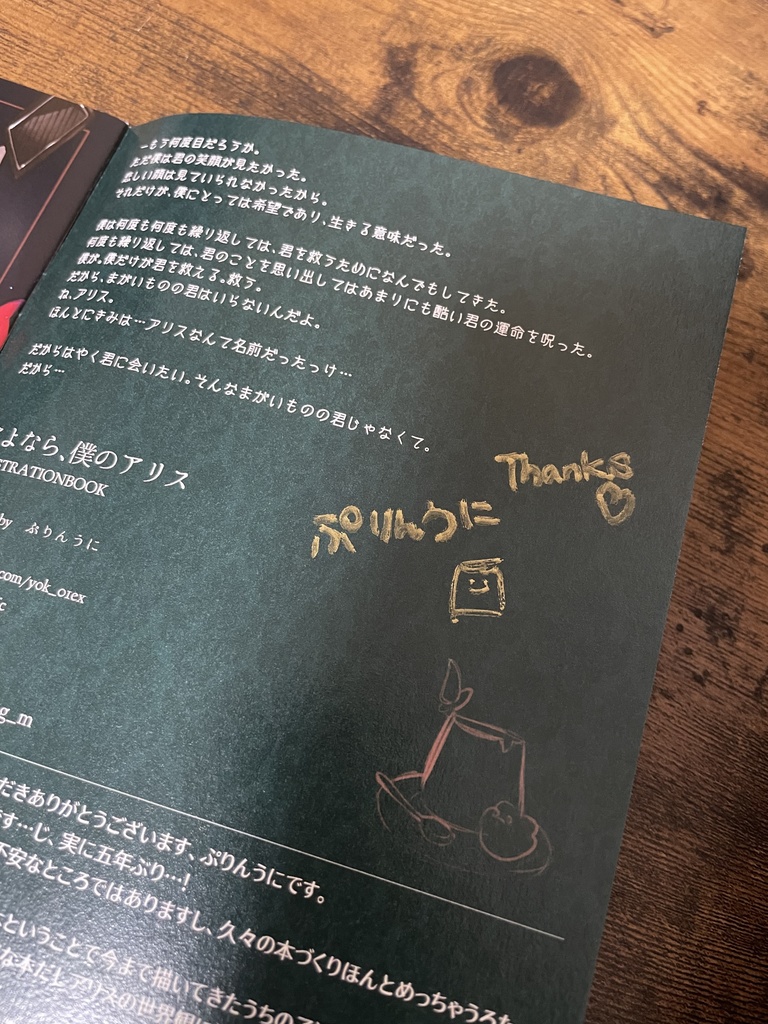 ―もう何度目だろうか。
ただ僕は君の笑顔が見たかった。
悲しい顔は見ていられなかったから。
それだけが、僕にとっては希望であり、生きる意味だった。
僕は何度も何度も繰り返しては、君を救うためになんでもしてきた。
何度も繰り返しては、君のことを思い出してはあまりにも酷い君の運命を呪った。
僕が。僕だけが君を救える。救う。
だから、まがいものの君はいらないんだよ。
ね、アリス。
ほんとにきみは…アリスなんて名前だったっけ…
だからはやく君に会いたい。そんなまがいものの君じゃなくて。
だから…
よなら、僕のアリス
STRATIONBOOK
by ぷりんうに
com/yok_01ex
g_m
Thanks
ぷりんうに
だきありがとうございます、ぷりんうにです。
す…じ、実に五年ぶり…!
不安なところではありますし、久々の本づくりほんとめっちゃうろた
ということで今まで描いてきたうちの